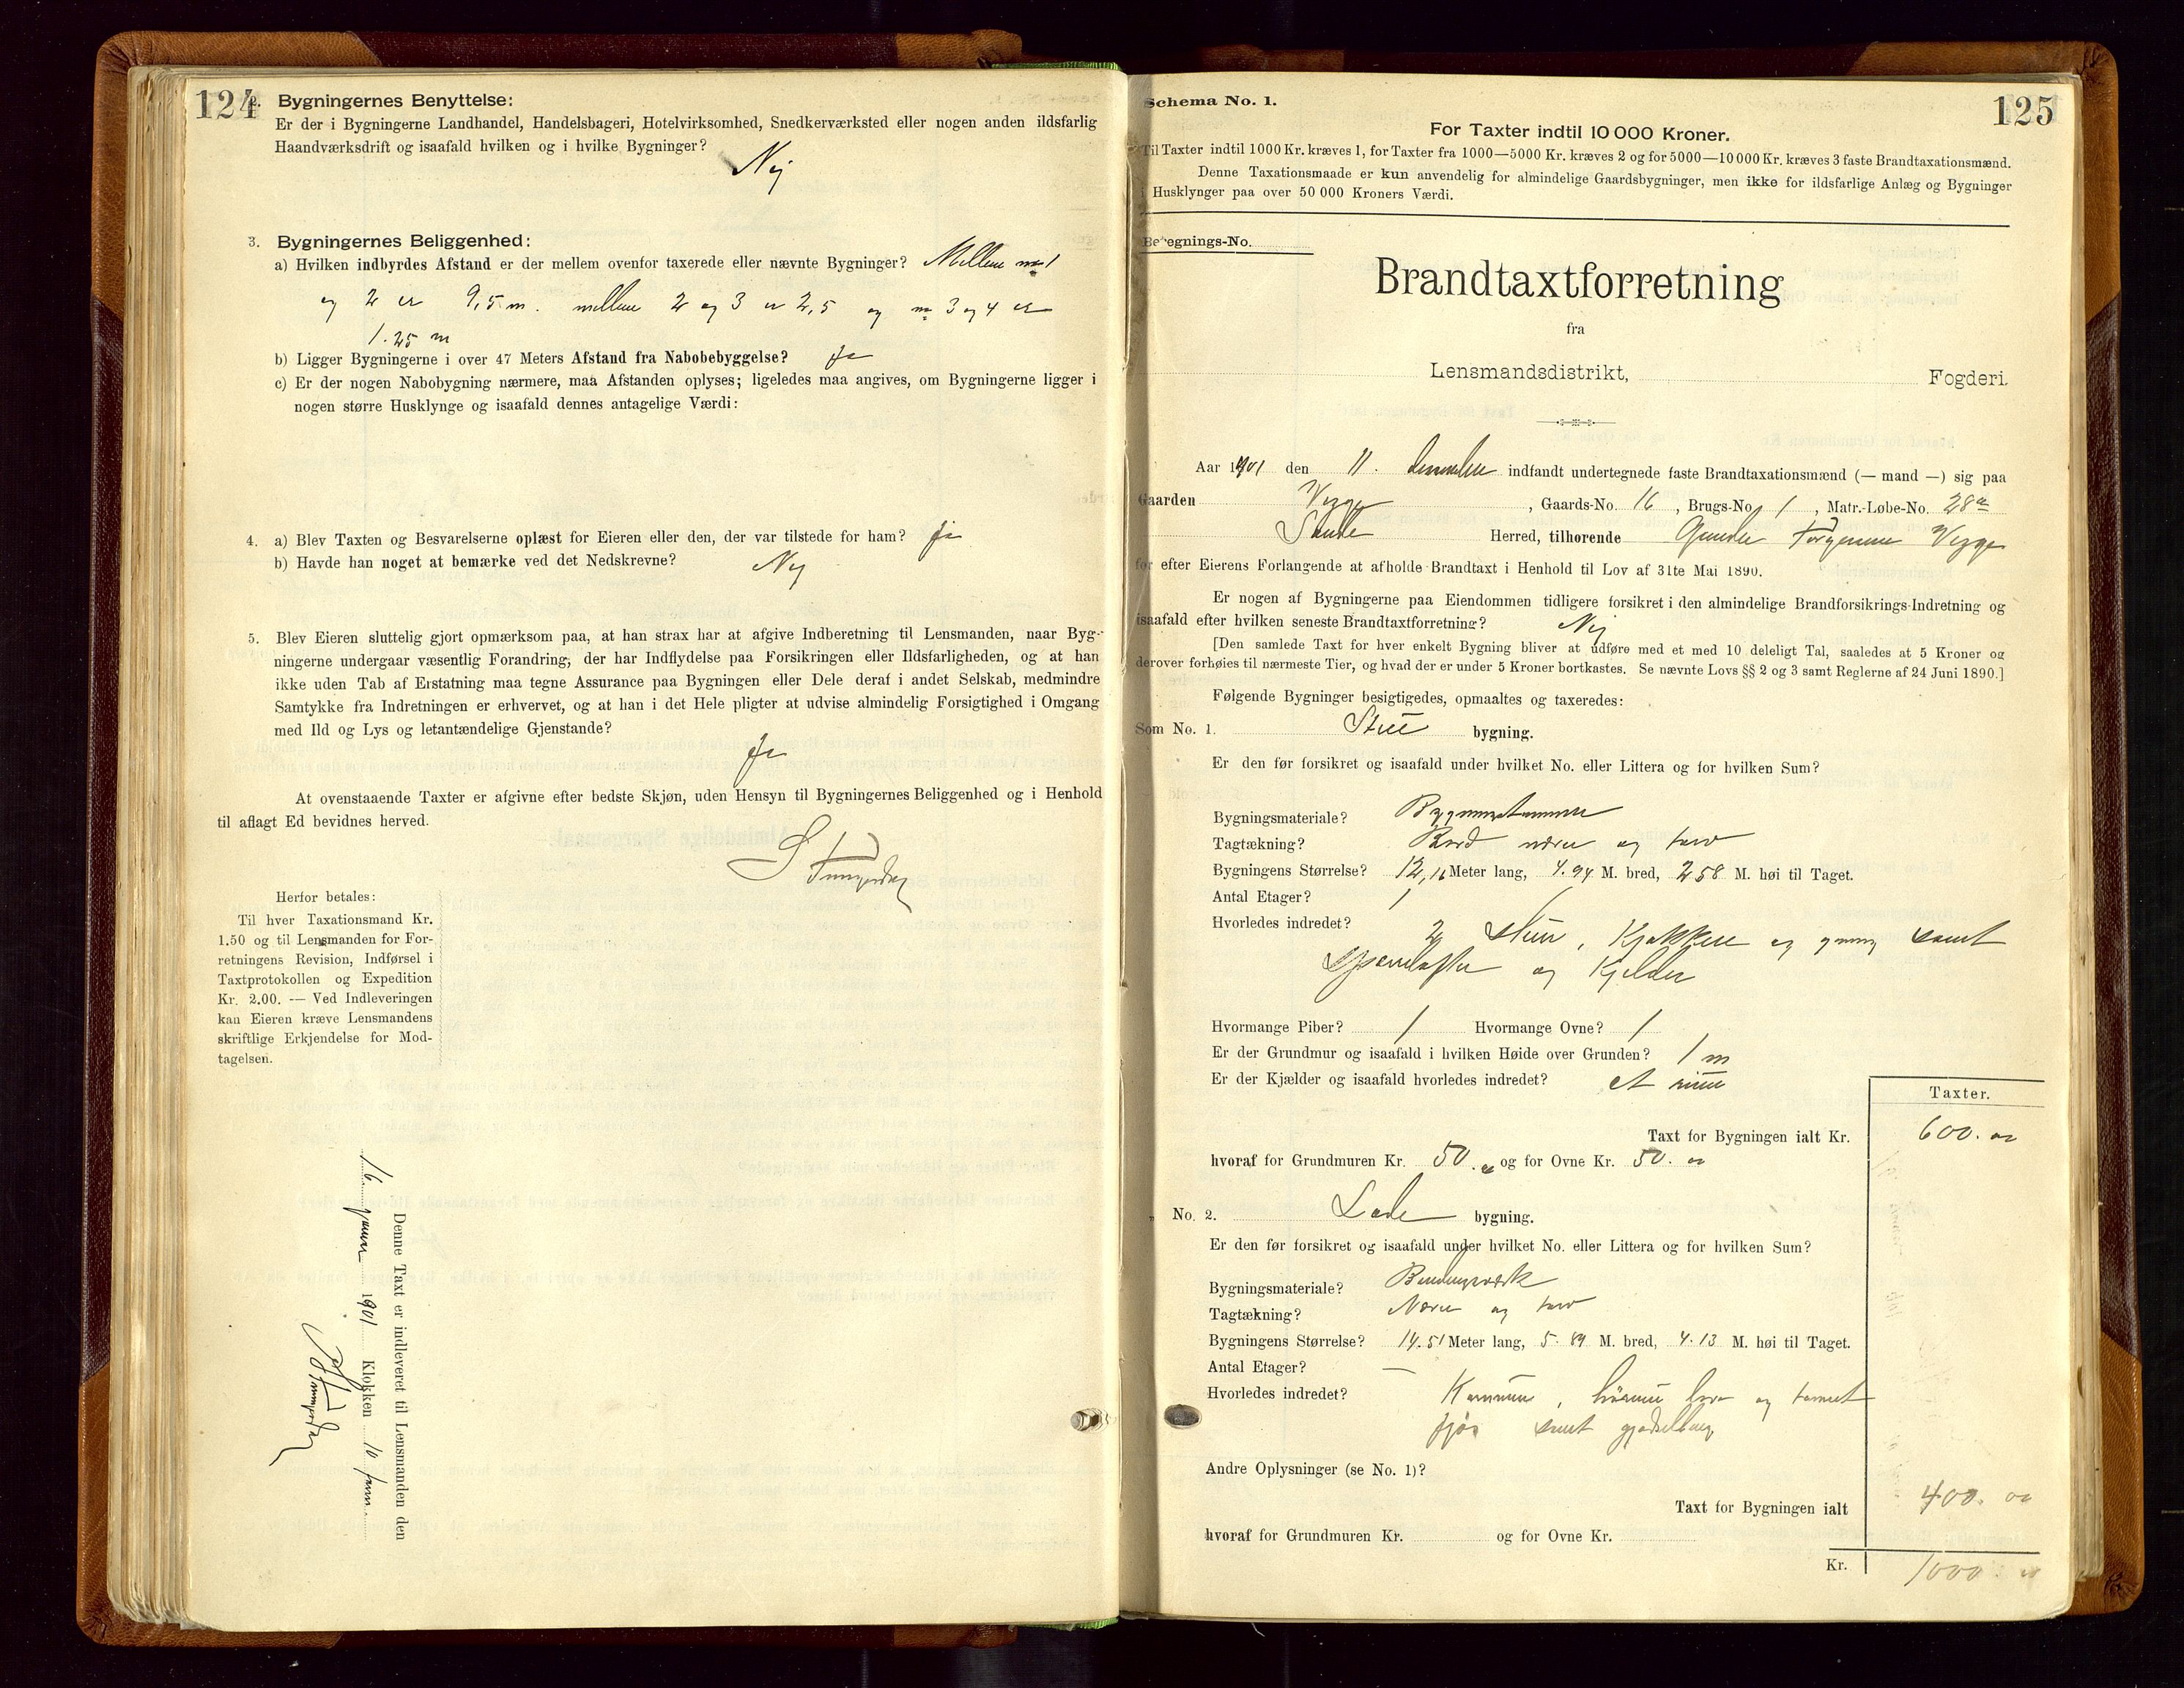 124
2. Bygningernes Benyttelse:
Er der i Bygningerne Landhandel, Handelsbageri, Hotelvirksomhed, Snedkerværksted eller nogen anden ildsfarlig
Haandværksdrift og isaafald hvilken og i hvilke Bygninger?
Nej
3. Bygningernes Beliggenhed:
a) Hvilken indbyrdes Afstand er der mellem ovenfor taxerede eller nævnte Bygninger? Mellem no 1
og 2 er 9,5 m. mellem 2 og 3 er 2,5 og no 3 og 4 er
1.25 m
b) Ligger Bygningerne i over 47 Meters Afstand fra Nabobebyggelse? Ja
c) Er der nogen Nabobygning nærmere, maa Afstanden oplyses; ligeledes maa angives, om Bygningerne ligger i
nogen større Husklynge og isaafald dennes antagelige Værdi:
4. a) Blev Taxten og Besvarelserne oplæst for Eieren eller den, der var tilstede for ham? Ja
b) Havde han noget at bemærke ved det Nedskrevne? Nej
5. Blev Eieren sluttelig gjort opmærksom paa, at han strax har at afgive Indberetning til Lensmanden, naar Byg-
ningerne undergaar væsentlig Forandring, der har Indflydelse paa Forsikringen eller Ildsfarligheden, og at han
ikke uden Tab af Erstatning maa tegne Assurance paa Bygningen eller Dele deraf i andet Selskab, medmindre
Samtykke fra Indretningen er erhvervet, og at han i det Hele pligter at udvise almindelig Forsigtighed i Omgang
med Ild og Lys og letantændelige Gjenstande?
Ja
At ovenstaaende Taxter er afgivne efter bedste Skjøn, uden Hensyn til Bygningernes Beliggenhed og i Henhold
til aflagt Ed bevidnes herved.
Herfor betales:
Til hver Taxationsmand Kr.
1.50 og til Lensmanden for For-
retningens Revision, Indførsel i
Taxtprotokollen og Expedition
Kr. 2.00. — Ved Indleveringen
kan Eieren kræve Lensmandens
skriftlige Erkjendelse for Mod-
tagelsen.
Denne Taxt er indleveret til Lensmanden den
16. januar 1901 Klokken 10 form.
Schema No. 1.
125
For Taxter indtil 10 000 Kroner.
Til Taxter indtil 1000 Kr. kræves 1, for Taxter fra 1000—5000 Kr. kræves 2 og for 5000—10 000 Kr. kræves 3 faste Brandtaxationsmænd.
Denne Taxationsmaade er kun anvendelig for almindelige Gaardsbygninger, men ikke for ildsfarlige Anlæg og Bygninger
i Husklynger paa over 50 000 Kroners Værdi.
Betegnings-No.
Brandtaxtforretning
fra
Lensmandsdistrikt, Fogderi.
Aar 1901 den 11. december indfandt undertegnede faste Brandtaxationsmænd (— mand —) sig paa
Gaarden Vegge, Gaards-No. 16, Brugs-No. 1, Matr.-Løbe-No. 28a
Herred, tilhørende Vegge
for efter Eierens Forlangende at afholde Brandtaxt i Henhold til Lov af 31te Mai 1890.
Er nogen af Bygningerne paa Eiendommen tidligere forsikret i den almindelige Brandforsikrings-Indretning og
isaafald efter hvilken seneste Brandtaxtforretning? Nej
[Den samlede Taxt for hver enkelt Bygning bliver at udføre med et med 10 deleligt Tal, saaledes at 5 Kroner og
derover forhøies til nærmeste Tier, og hvad der er under 5 Kroner bortkastes. Se nævnte Lovs §§ 2 og 3 samt Reglerne af 24 Juni 1890.]
Følgende Bygninger besigtigedes, opmaaltes og taxeredes:
Som No. 1. Stue bygning.
Er den før forsikret og isaafald under hvilket No. eller Littera og for hvilken Sum?
Bygningsmateriale? Bygningstømmer
Tagtækning? Bord næver og torv
Bygningens Størrelse? 12,16 Meter lang, 4.94 M. bred, 2 58 M. høi til Taget.
Antal Etager? 1
Hvorledes indredet? 2 stuer, Kjøkken og gang samt
og Kjelder
Hvormange Piber? 1 Hvormange Ovne? 1
Er der Grundmur og isaafald i hvilken Høide over Grunden? 1 m
Er der Kjælder og isaafald hvorledes indredet? et rum
Taxter.
Taxt for Bygningen ialt Kr. 600. 00
hvoraf for Grundmuren Kr. 50. 00 og for Ovne Kr. 50. 00
„ No. 2. Lade bygning.
Er den før forsikret og isaafald under hvilket No. eller Littera og for hvilken Sum?
Bygningsmateriale? Bindingsværk
Tagtækning? Næver og torv
Bygningens Størrelse? 14.51 Meter lang, 5.89 M. bred, 4.13 M. høi til Taget.
Antal Etager? —
Hvorledes indredet? og
fjøs samt
Andre Oplysninger (se No. 1)?
Taxt for Bygningen ialt 400. 00
hvoraf for Grundmuren Kr. og for Ovne Kr.
Kr. 1000. 00